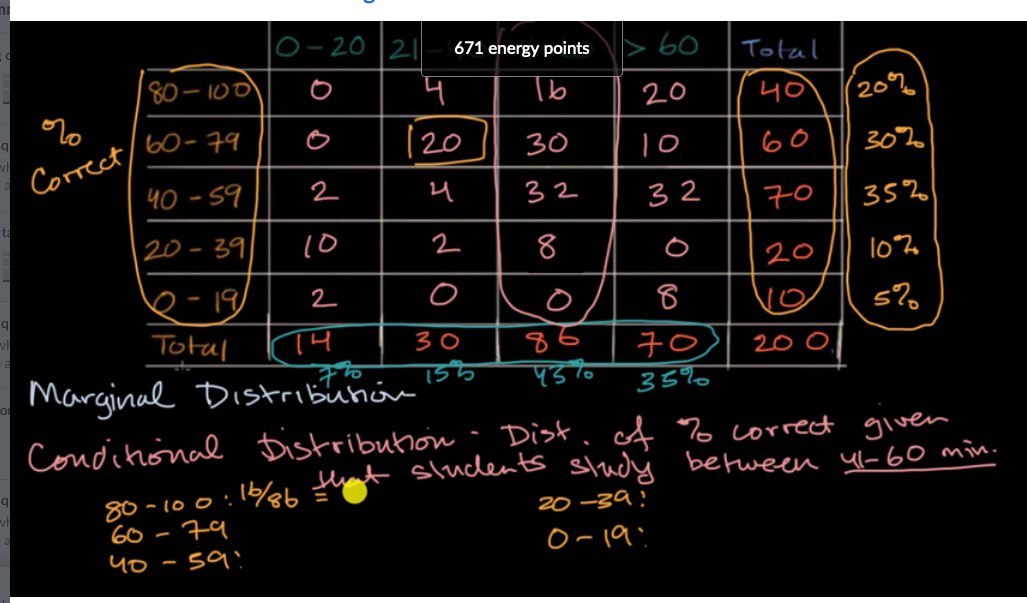 671 energy points
0-20 21 > 60 Total
80-100 0 4 16 20 40 20%
% Correct
60-79 0 20 30 10 60 30%
40-59 2 4 32 32 70 35%
20-39 10 2 8 0 20 10%
0-19 2 0 0 8 10 5%
Total 14 30 86 70 200
7% 15% 43% 35%
Marginal Distribution
Conditional Distribution - Dist. of % correct given
that students study between 41-60 min.
80-100: 16/86 =
60-79
40-59:
20-39:
0-19: